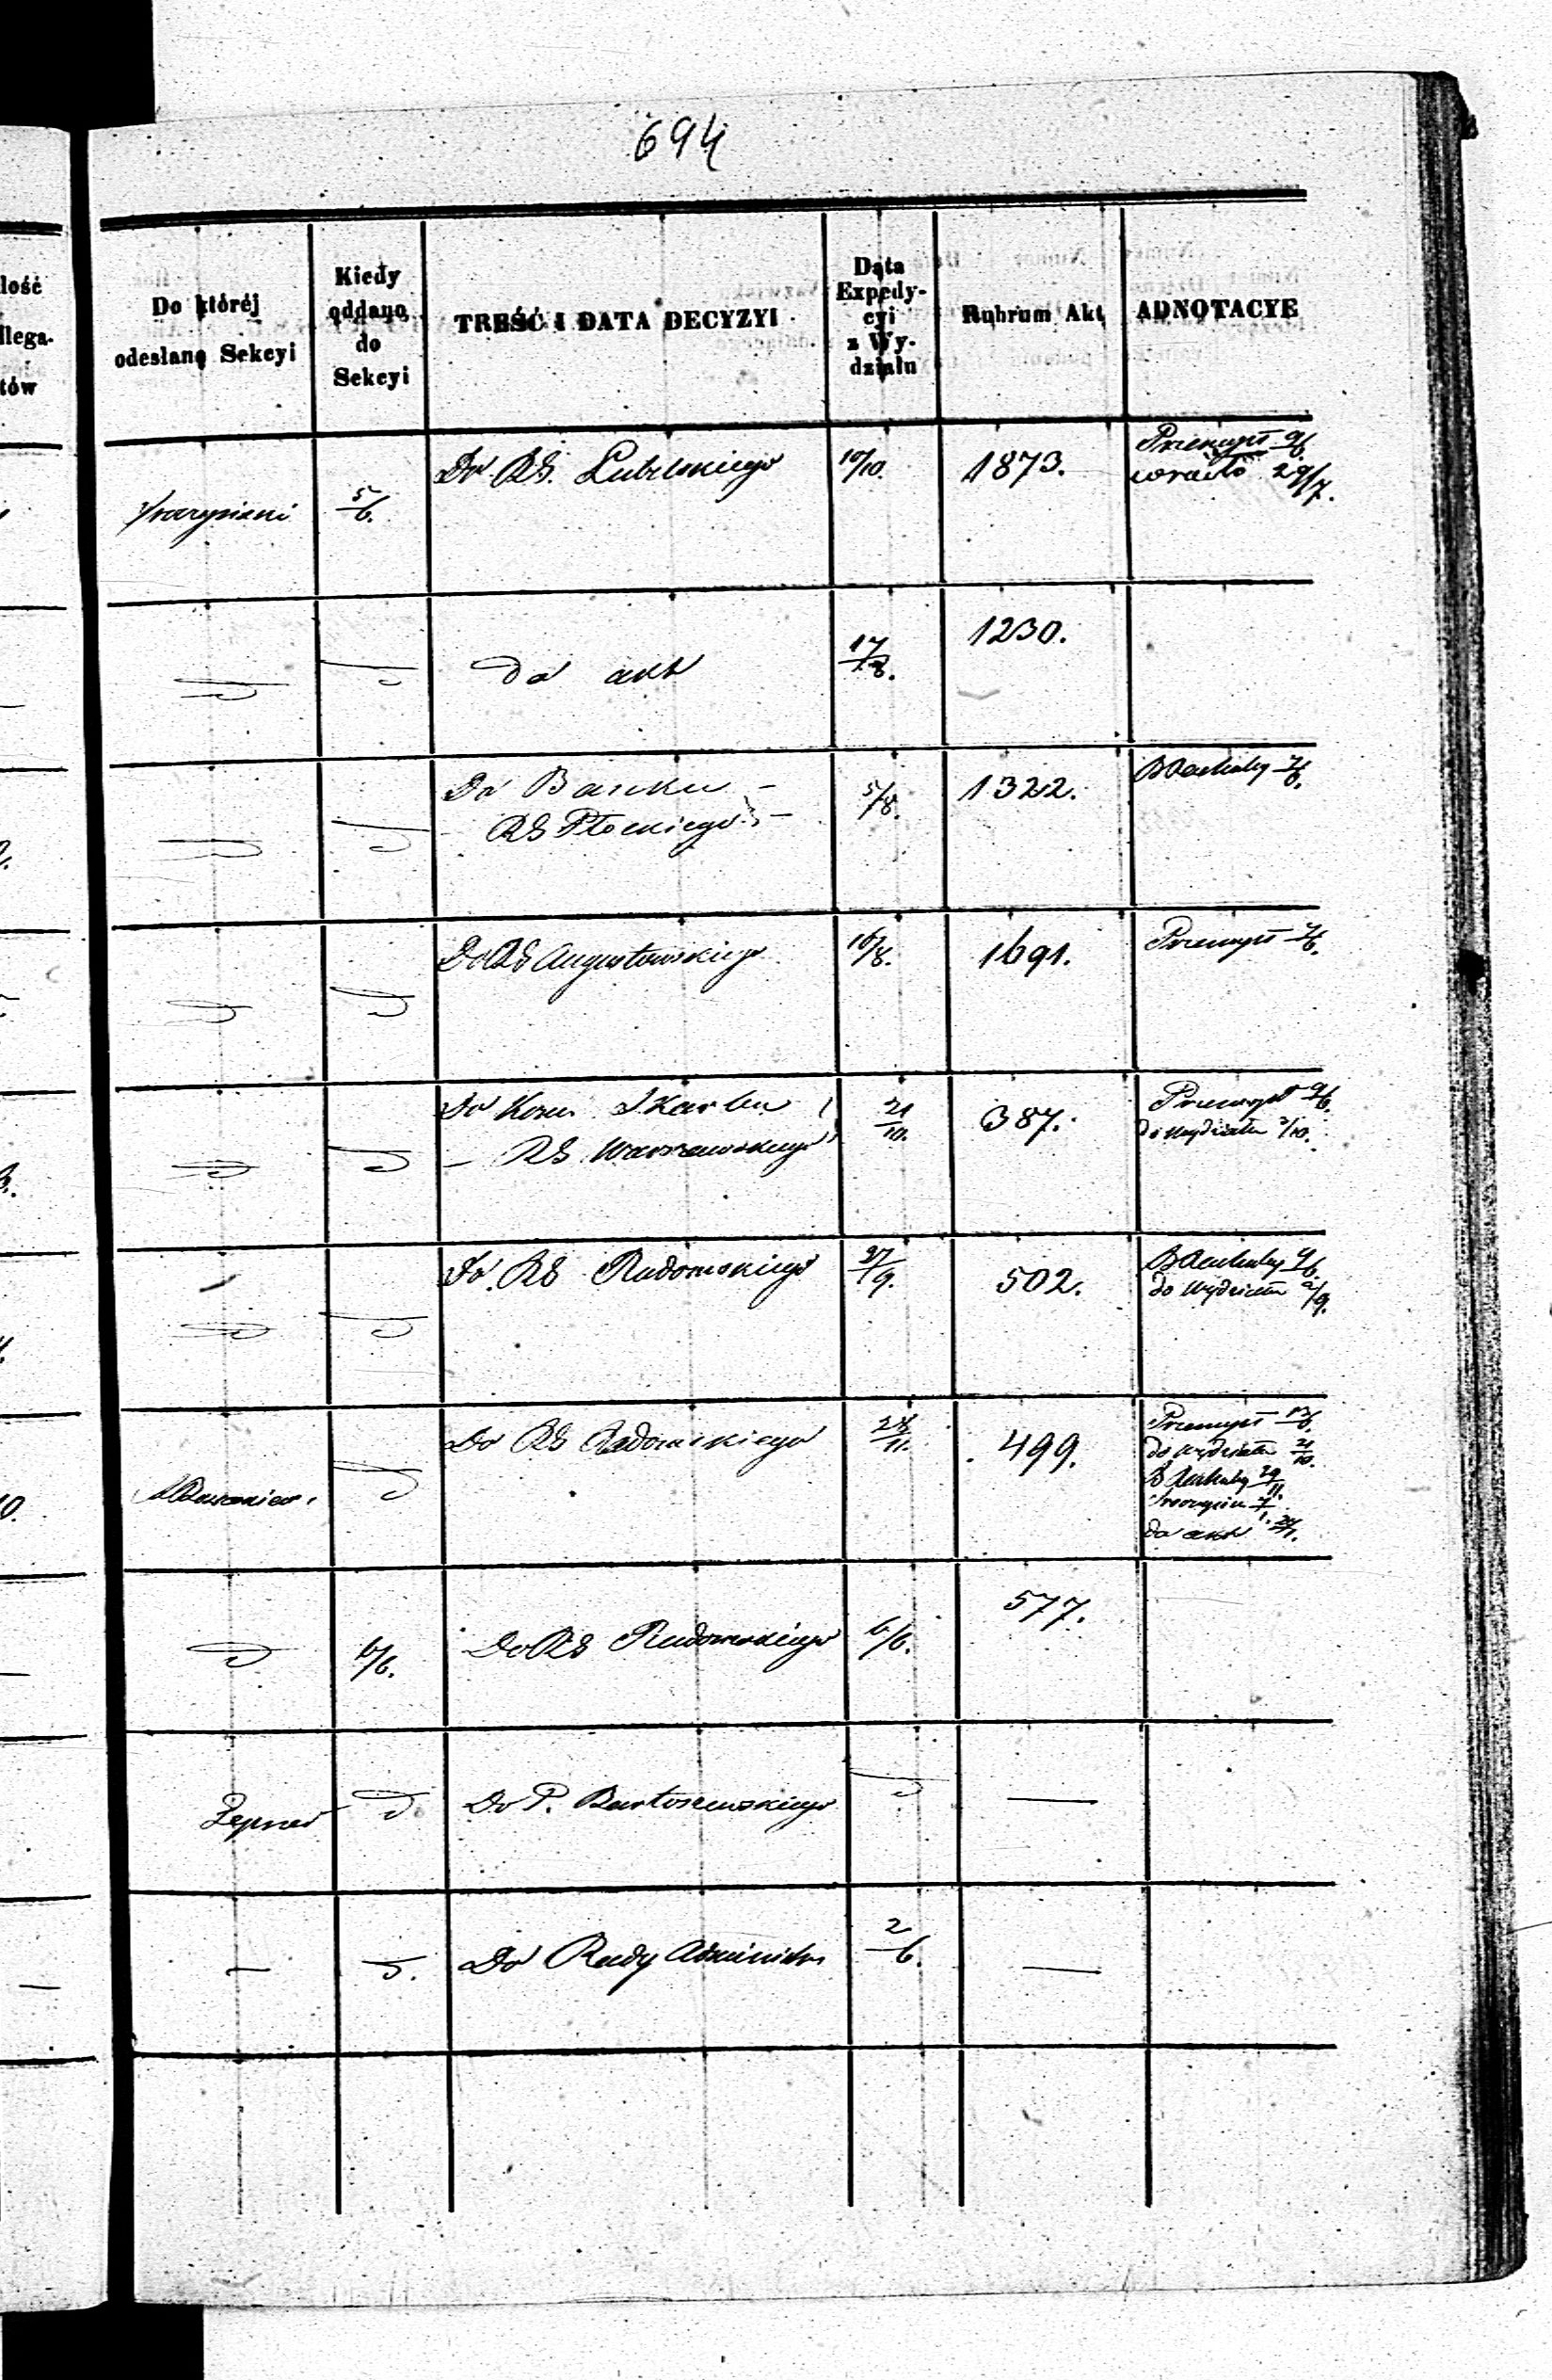 694
lość
llega-
tów
Do któréj
odesłano Sekcyi
Kiedy
oddano
do
Sekcyi
TREŚĆ I DATA DECYZYI
Data
Expedy-
cyi
z Wy-
działu
Rubrum Akt
ADNOTACYE
5/6.
Do RG. Lubelskiego
10/10.
1873.
Przemysł 9/6.
wraca 29/7.
do akt
17/8.
1230.
Do Banku -
RG Płockiego -
5/8.
1322.
7/6.
Do RG Augustowskiego
16/8.
1691.
Przemysł 7/6.
Do Kom. Skarbu
- RG Warszawskiego
21/10.
387.
Przemysł 9/6.
do Wydziału 3/10.
Do RG Radomskiego
27/9.
502.
do Wydziału 2/9.
Do RG Radomskiego
28/11.
499.
Przemysł 13/6.
do Wydziału 21/10.
29/11.
do akt
6/6.
Do RG Radomskiego
6/6.
577.
Do P. Bartoszewskiego
—
—
Do Rady Administr
2/6.
—